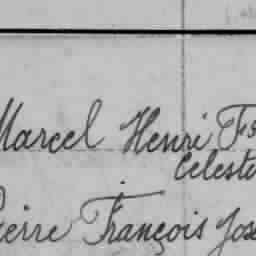 Marcel Henri Fs
Celest
Pierre François Jos